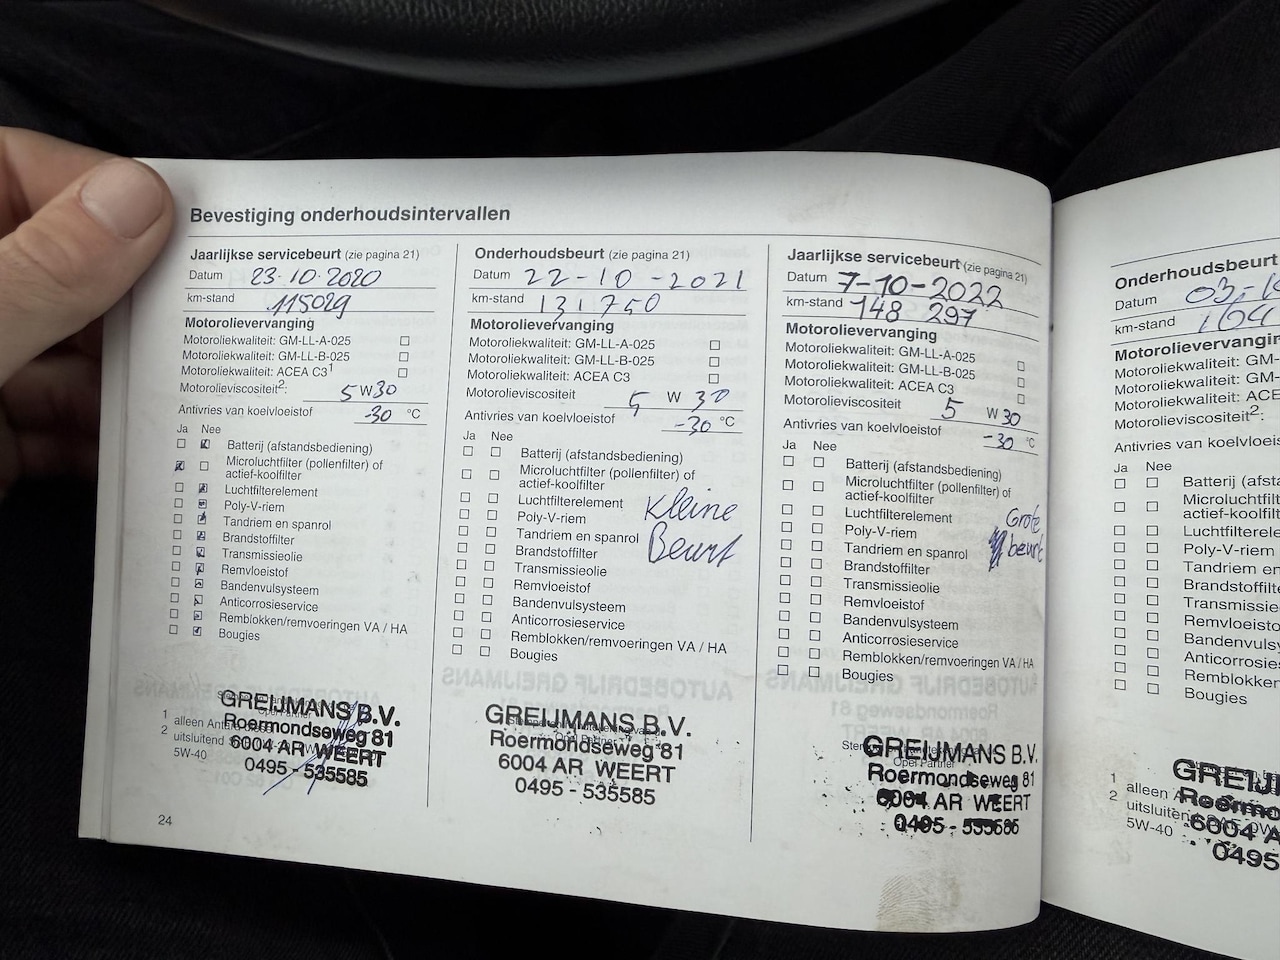 Bevestiging onderhoudsintervallen
Jaarlijkse servicebeurt (zie pagina 21)
Datum 23-10-2020
km-stand 115029
Motorolievervanging
Motoroliekwaliteit: GM-LL-A-025
Motoroliekwaliteit: GM-LL-B-025
Motoroliekwaliteit: ACEA C3¹
Motorolieviscositeit²: 5 W 30
Antivries van koelvloeistof -30 °C
Ja Nee
Batterij (afstandsbediening)
Microluchtfilter (pollenfilter) of
actief-koolfilter
Luchtfilterelement
Poly-V-riem
Tandriem en spanrol
Brandstoffilter
Transmissieolie
Remvloeistof
Bandenvulsysteem
Anticorrosieservice
Remblokken/remvoeringen VA / HA
Bougies
Opel Partner
GREIJMANS B.V.
Roermondseweg 81
6004 AR WEERT
0495 - 535585
1 alleen
2 uitsluitend
5W-40
24
Onderhoudsbeurt (zie pagina 21)
Datum 22-10-2021
km-stand 131750
Motorolievervanging
Motoroliekwaliteit: GM-LL-A-025
Motoroliekwaliteit: GM-LL-B-025
Motoroliekwaliteit: ACEA C3
Motorolieviscositeit 5 W 30
Antivries van koelvloeistof -30 °C
Ja Nee
Batterij (afstandsbediening)
Microluchtfilter (pollenfilter) of
actief-koolfilter
Luchtfilterelement
Poly-V-riem
Tandriem en spanrol
Brandstoffilter
Transmissieolie
Remvloeistof
Bandenvulsysteem
Anticorrosieservice
Remblokken/remvoeringen VA / HA
Bougies
Kleine
Beurt
Opel Partner
GREIJMANS B.V.
Roermondseweg 81
6004 AR WEERT
0495 - 535585
Jaarlijkse servicebeurt (zie pagina 21)
Datum 7-10-2022
km-stand 148 297
Motorolievervanging
Motoroliekwaliteit: GM-LL-A-025
Motoroliekwaliteit: GM-LL-B-025
Motoroliekwaliteit: ACEA C3
Motorolieviscositeit 5 W 30
Antivries van koelvloeistof -30 °C
Ja Nee
Batterij (afstandsbediening)
Microluchtfilter (pollenfilter) of
actief-koolfilter
Luchtfilterelement
Poly-V-riem
Tandriem en spanrol
Brandstoffilter
Transmissieolie
Remvloeistof
Bandenvulsysteem
Anticorrosieservice
Remblokken/remvoeringen VA / HA
Bougies
Grote
beurt
Opel Partner
GREIJMANS B.V.
Roermondseweg 81
6004 AR WEERT
0495 - 535585
Onderhoudsbeurt
Datum 03-1
km-stand 164
Motorolievervangin
Motoroliekwaliteit: GM-
Motoroliekwaliteit: GM-
Motoroliekwaliteit: ACE
Motorolieviscositeit²:
Antivries van koelvloeistof
Ja Nee
Batterij (afsta
Microluchtfil
actief-koolfil
Luchtfilterele
Poly-V-riem
Tandriem en
Brandstoffilte
Transmissie
Remvloeisto
Bandenvulsy
Anticorrosies
Remblokken
Bougies
GREIJ
Roermo
6004 A
0495
1 alleen
2 uitsluitend
5W-40